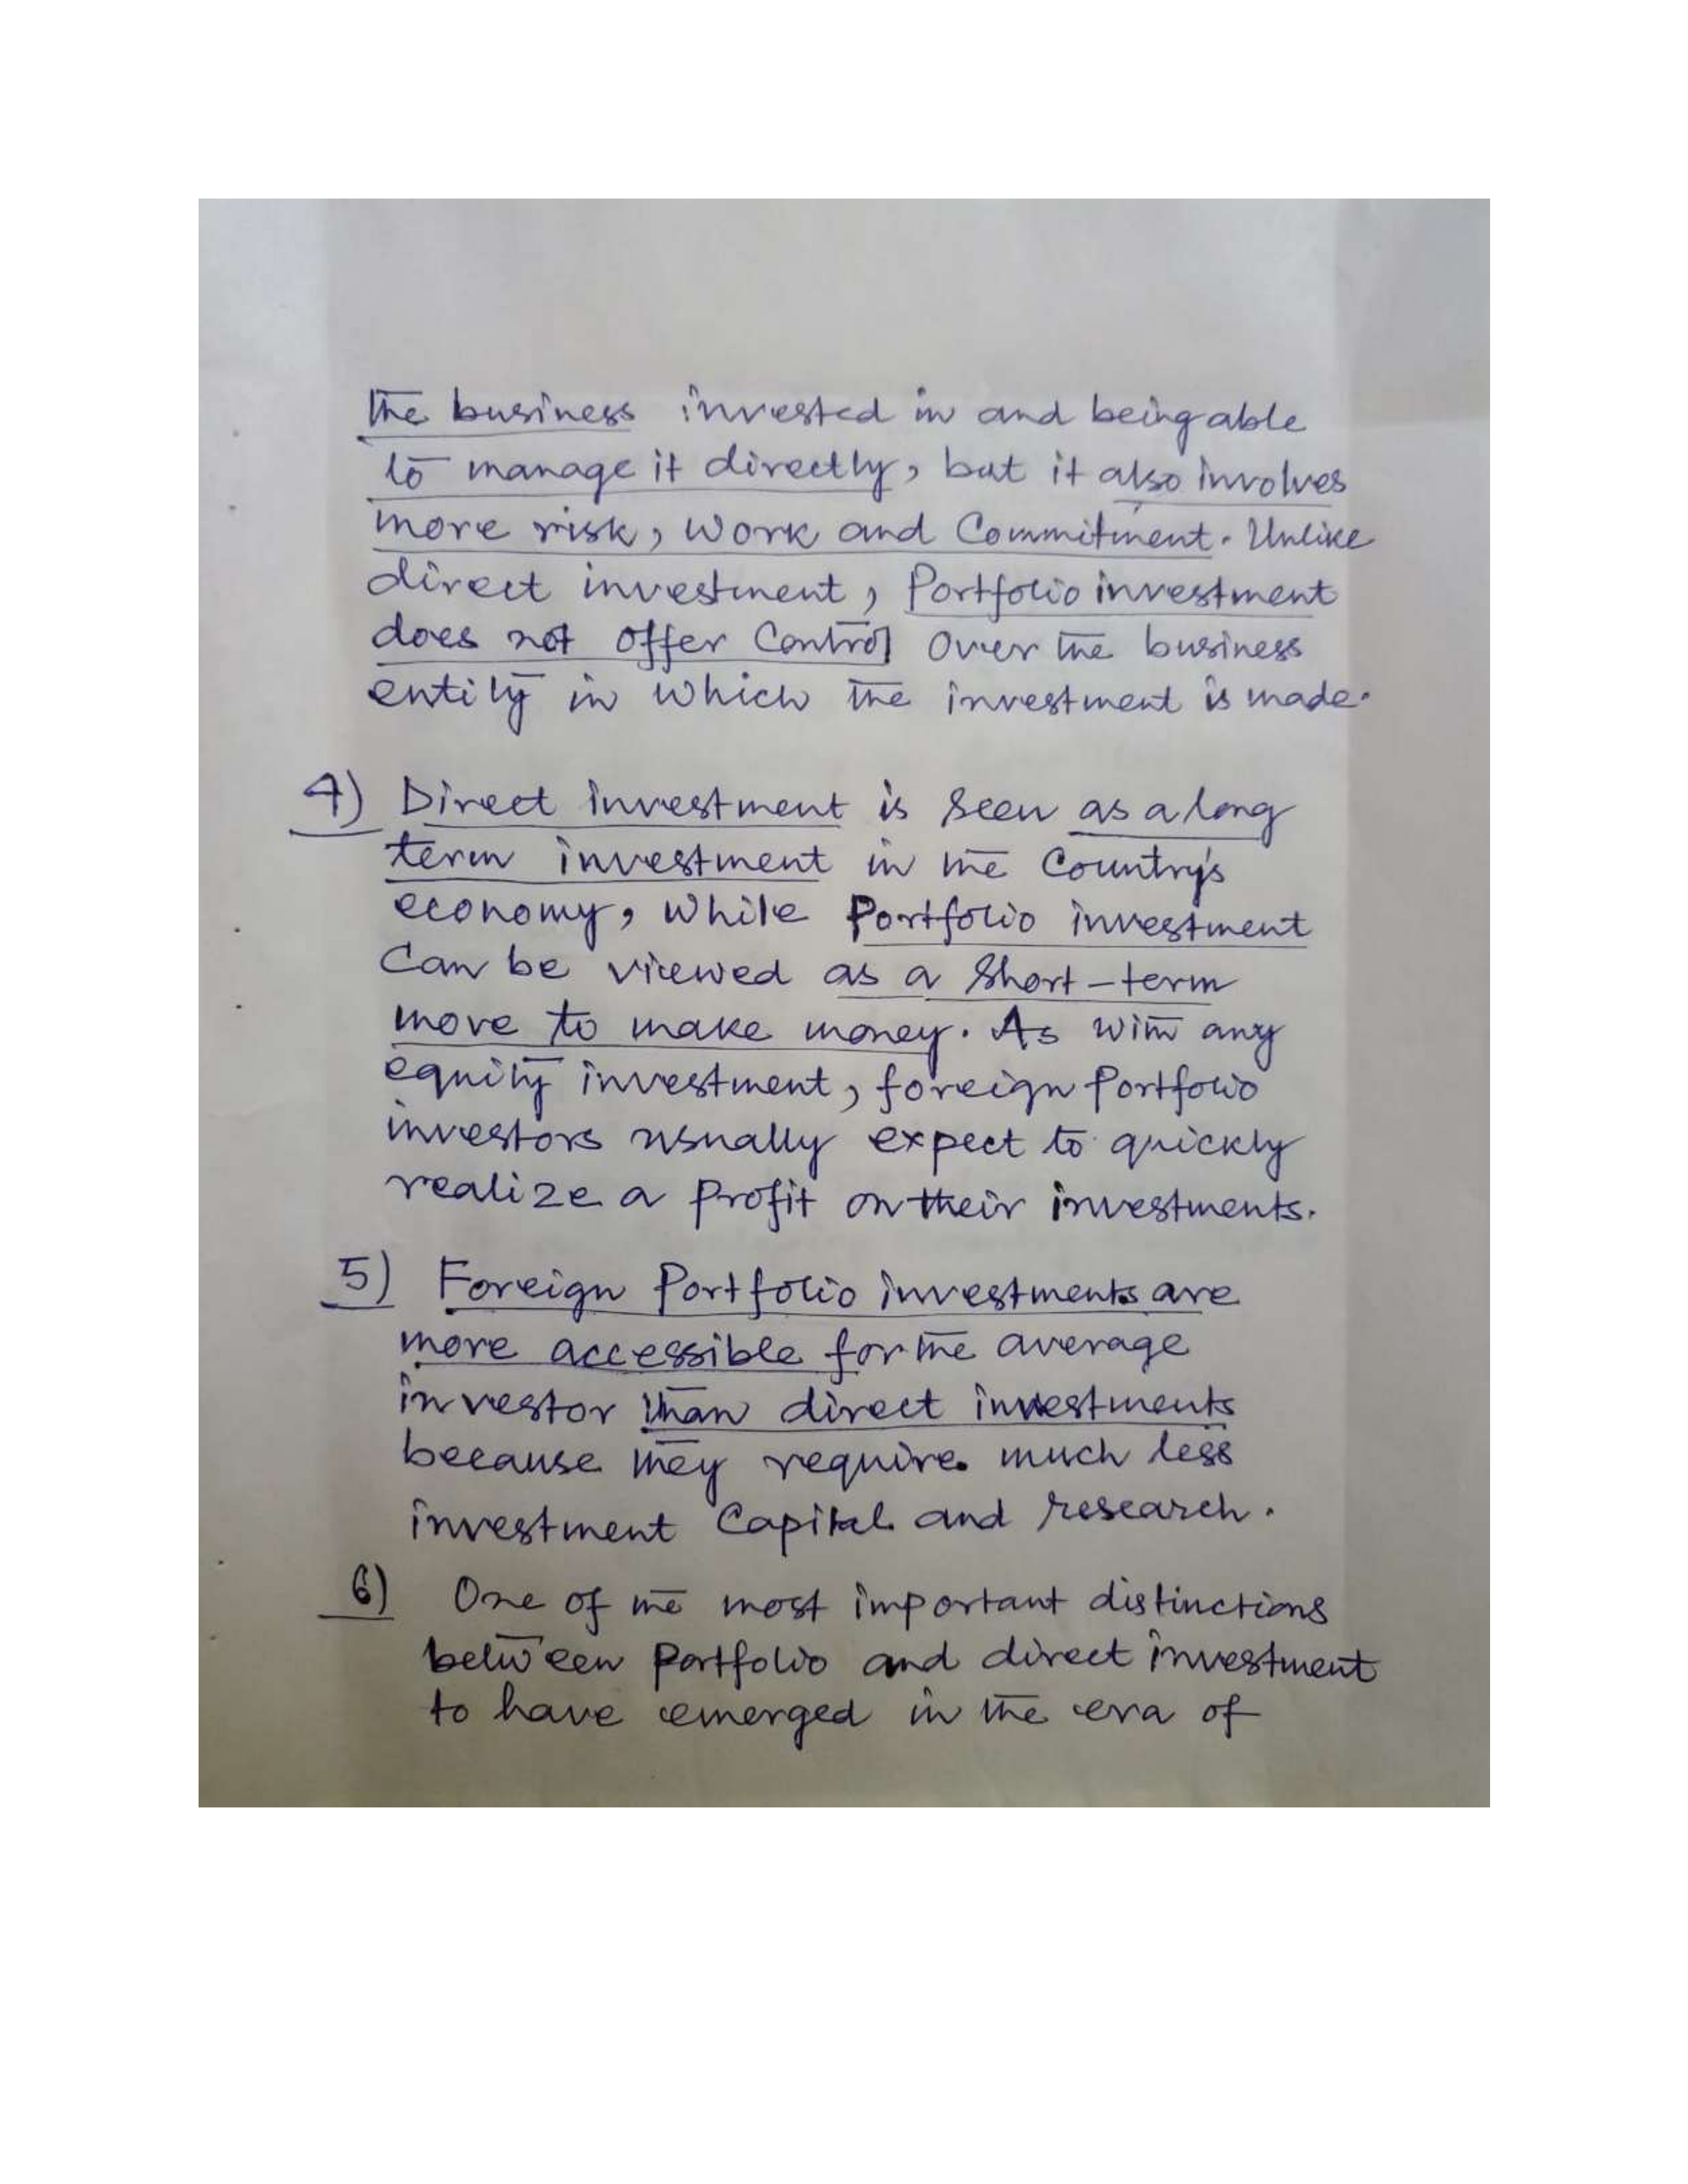 the business invested in and being able
to manage it directly, but it also involves
more risk, work and Commitment. Unlike
direct investment, Portfolio investment
does not offer Control over the business
entity in which the investment is made.
4) Direct investment is seen as a long
term investment in the Country's
economy, while Portfolio investment
Can be viewed as a Short-term
move to make money. As with any
equity investment, foreign Portfolio
investors usually expect to quickly
realize a profit on their investments.
5) Foreign Portfolio investments are
more accessible for the average
investor than direct investments
because they require much less
investment Capital and research.
6) One of the most important distinctions
between Portfolio and direct investment
to have emerged in the era of